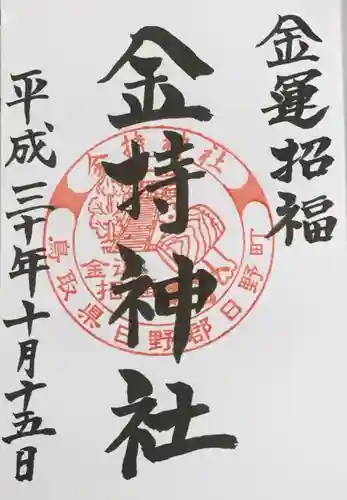 金運招福
金持神社
平成三十年十月十五日
金持神社
鳥取県日野郡日野町